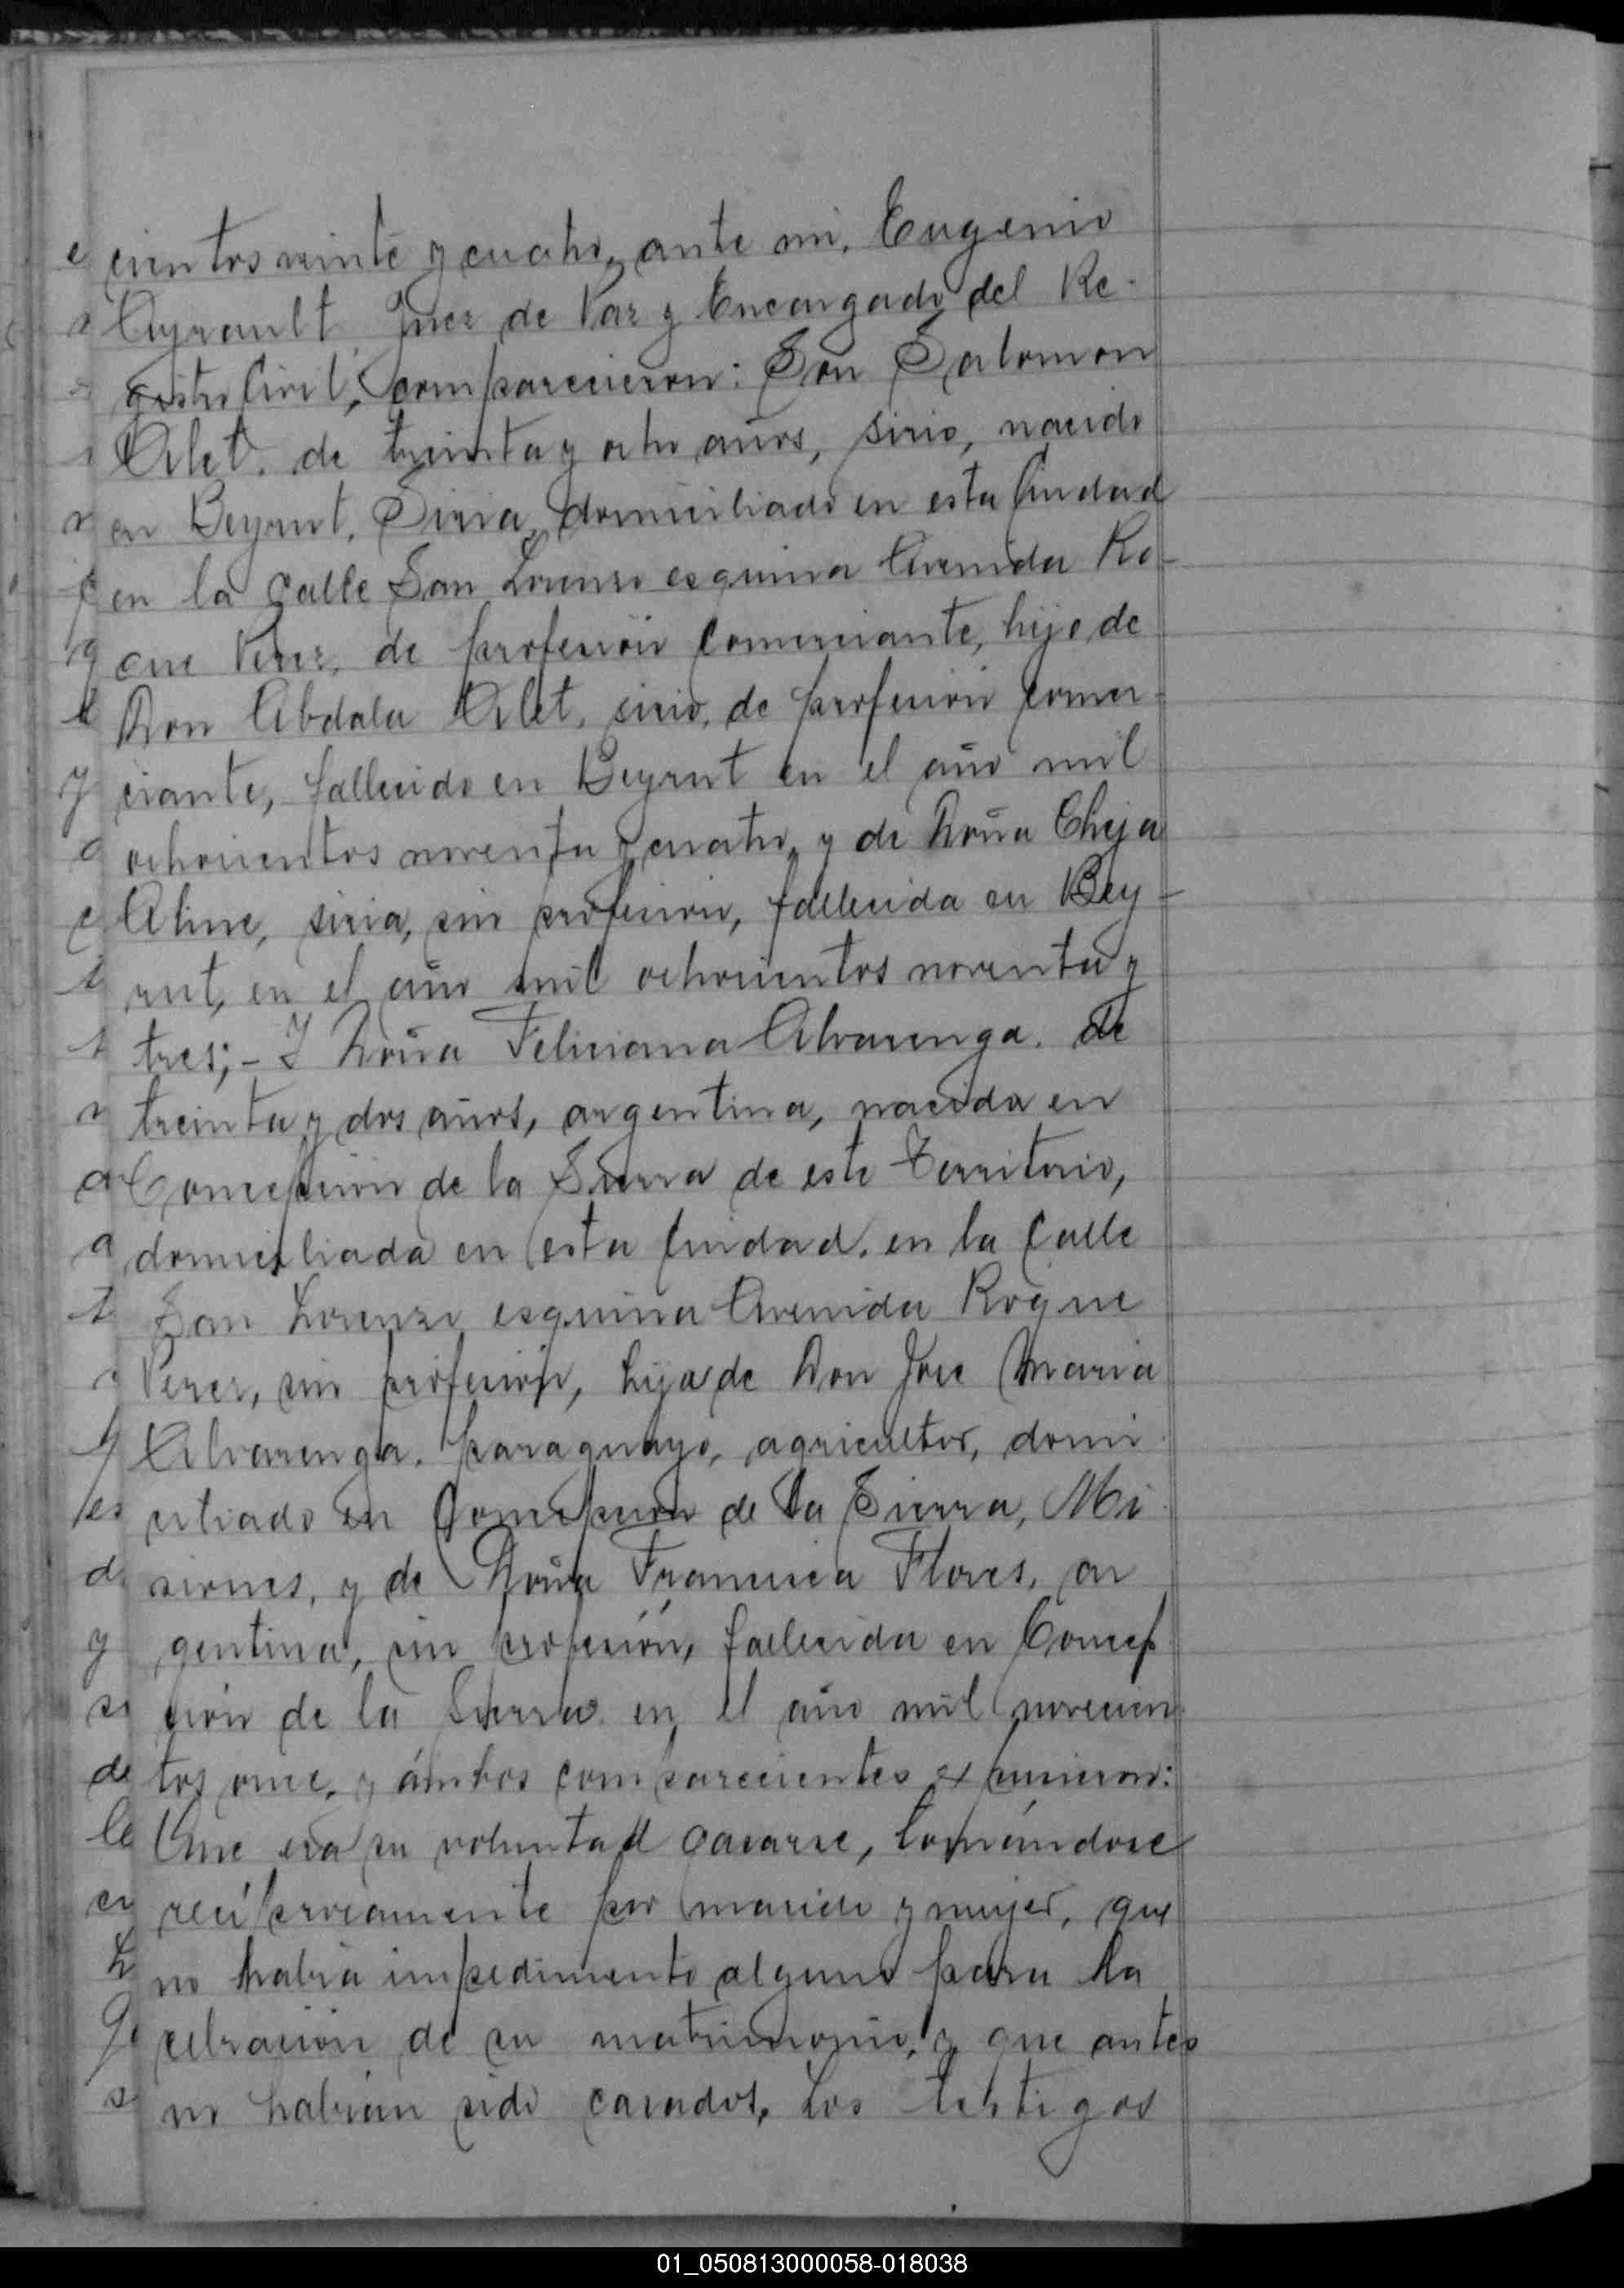 cientos veinte y cuatro, ante mi, Eugenio
Ayrault, Juez de Paz y Encargado del Re-
gistro Civil, comparecieron: Don Salomon
Alet, de treinta y ocho años, sirio, nacido
en Beyrut, Siria, domiciliado en esta Ciudad
en la calle San Lorenzo esquina Avenida Ro-
que Perez, de profesión Comerciante, hijo de
Don Abdala Alet, sirio, de profesión comer-
ciante, fallecido en Beyrut en el año mil
ochocientos noventa y cuatro, y de Doña Cheja
Aline, siria, sin profesion, fallecida en Bey-
rut, en el año mil ochocientos noventa y
tres;- I Doña Feliciana Alvarenga, de
treinta y dos años, argentina, nacida en
Concepcion de la Sierra de este Territorio,
domiciliada en esta Ciudad, en la Calle
San Lorenzo esquina Avenida Roque
Perez, sin profesión, hija de Don Jose Maria
Alvarenga, paraguayo, agricultor, domi
ciliado en Concepcion de la Sierra, Mi
siones, y de Doña Francisca Flores, ar
gentina, sin profesión, fallecida en Concep
ción de la Sierra en el año mil novecien
tos once, y ámbos comparecientes expusieron:
Que era su voluntad casarse, tomándose
recíprocamente por marido y mujer, que
no habia impedimento alguno para la
celbración de su matrimonio, y que antes
no habian sido casados, Los testigos
01_050813000058-018038